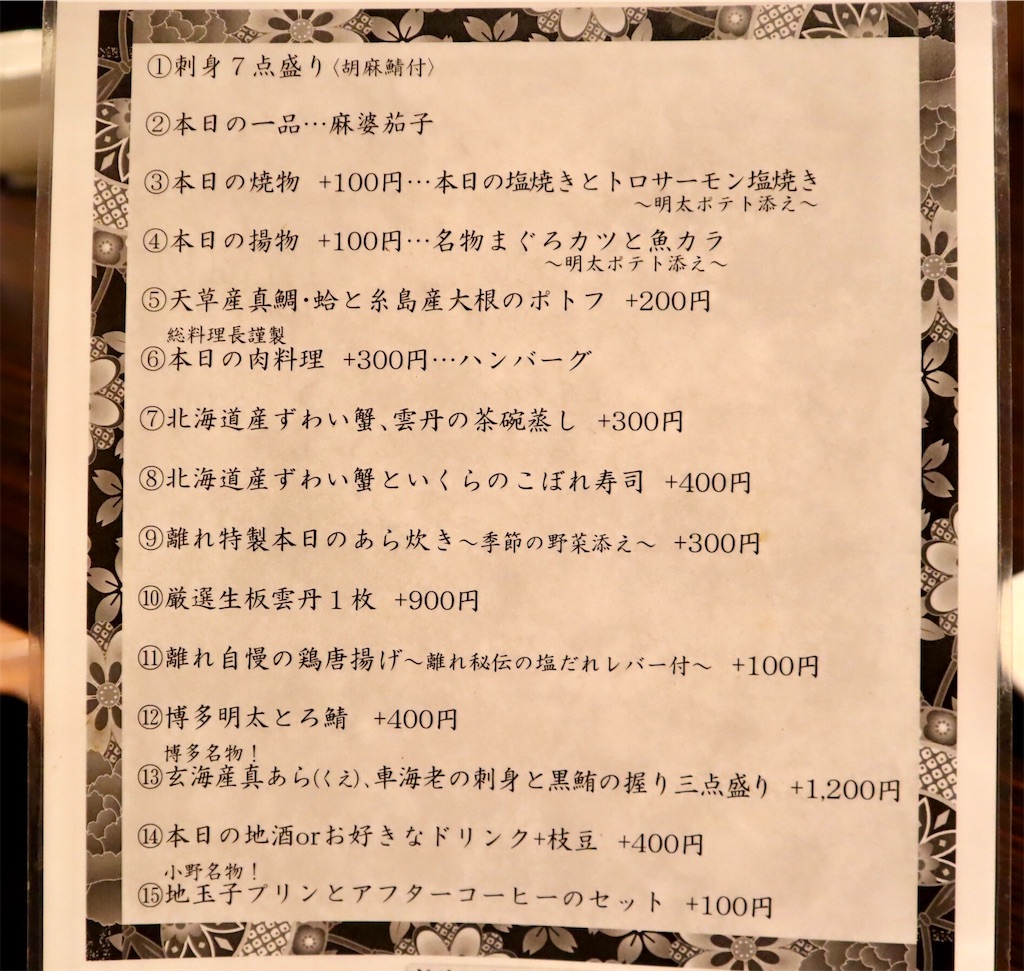 ①刺身７点盛り〈胡麻鯖付〉
②本日の一品…麻婆茄子
③本日の焼物 +100円…本日の塩焼きとトロサーモン塩焼き
～明太ポテト添え～
④本日の揚物 +100円…名物まぐろカツと魚カラ
～明太ポテト添え～
⑤天草産真鯛・蛤と糸島産大根のポトフ +200円
総料理長謹製
⑥本日の肉料理 +300円…ハンバーグ
⑦北海道産ずわい蟹、雲丹の茶碗蒸し +300円
⑧北海道産ずわい蟹といくらのこぼれ寿司 +400円
⑨離れ特製本日のあら炊き～季節の野菜添え～ +300円
⑩厳選生板雲丹１枚 +900円
⑪離れ自慢の鶏唐揚げ～離れ秘伝の塩だれレバー付～ +100円
⑫博多明太とろ鯖 +400円
博多名物！
⑬玄海産真あら(くえ)、車海老の刺身と黒鮪の握り三点盛り +1,200円
⑭本日の地酒orお好きなドリンク+枝豆 +400円
小野名物！
⑮地玉子プリンとアフターコーヒーのセット +100円